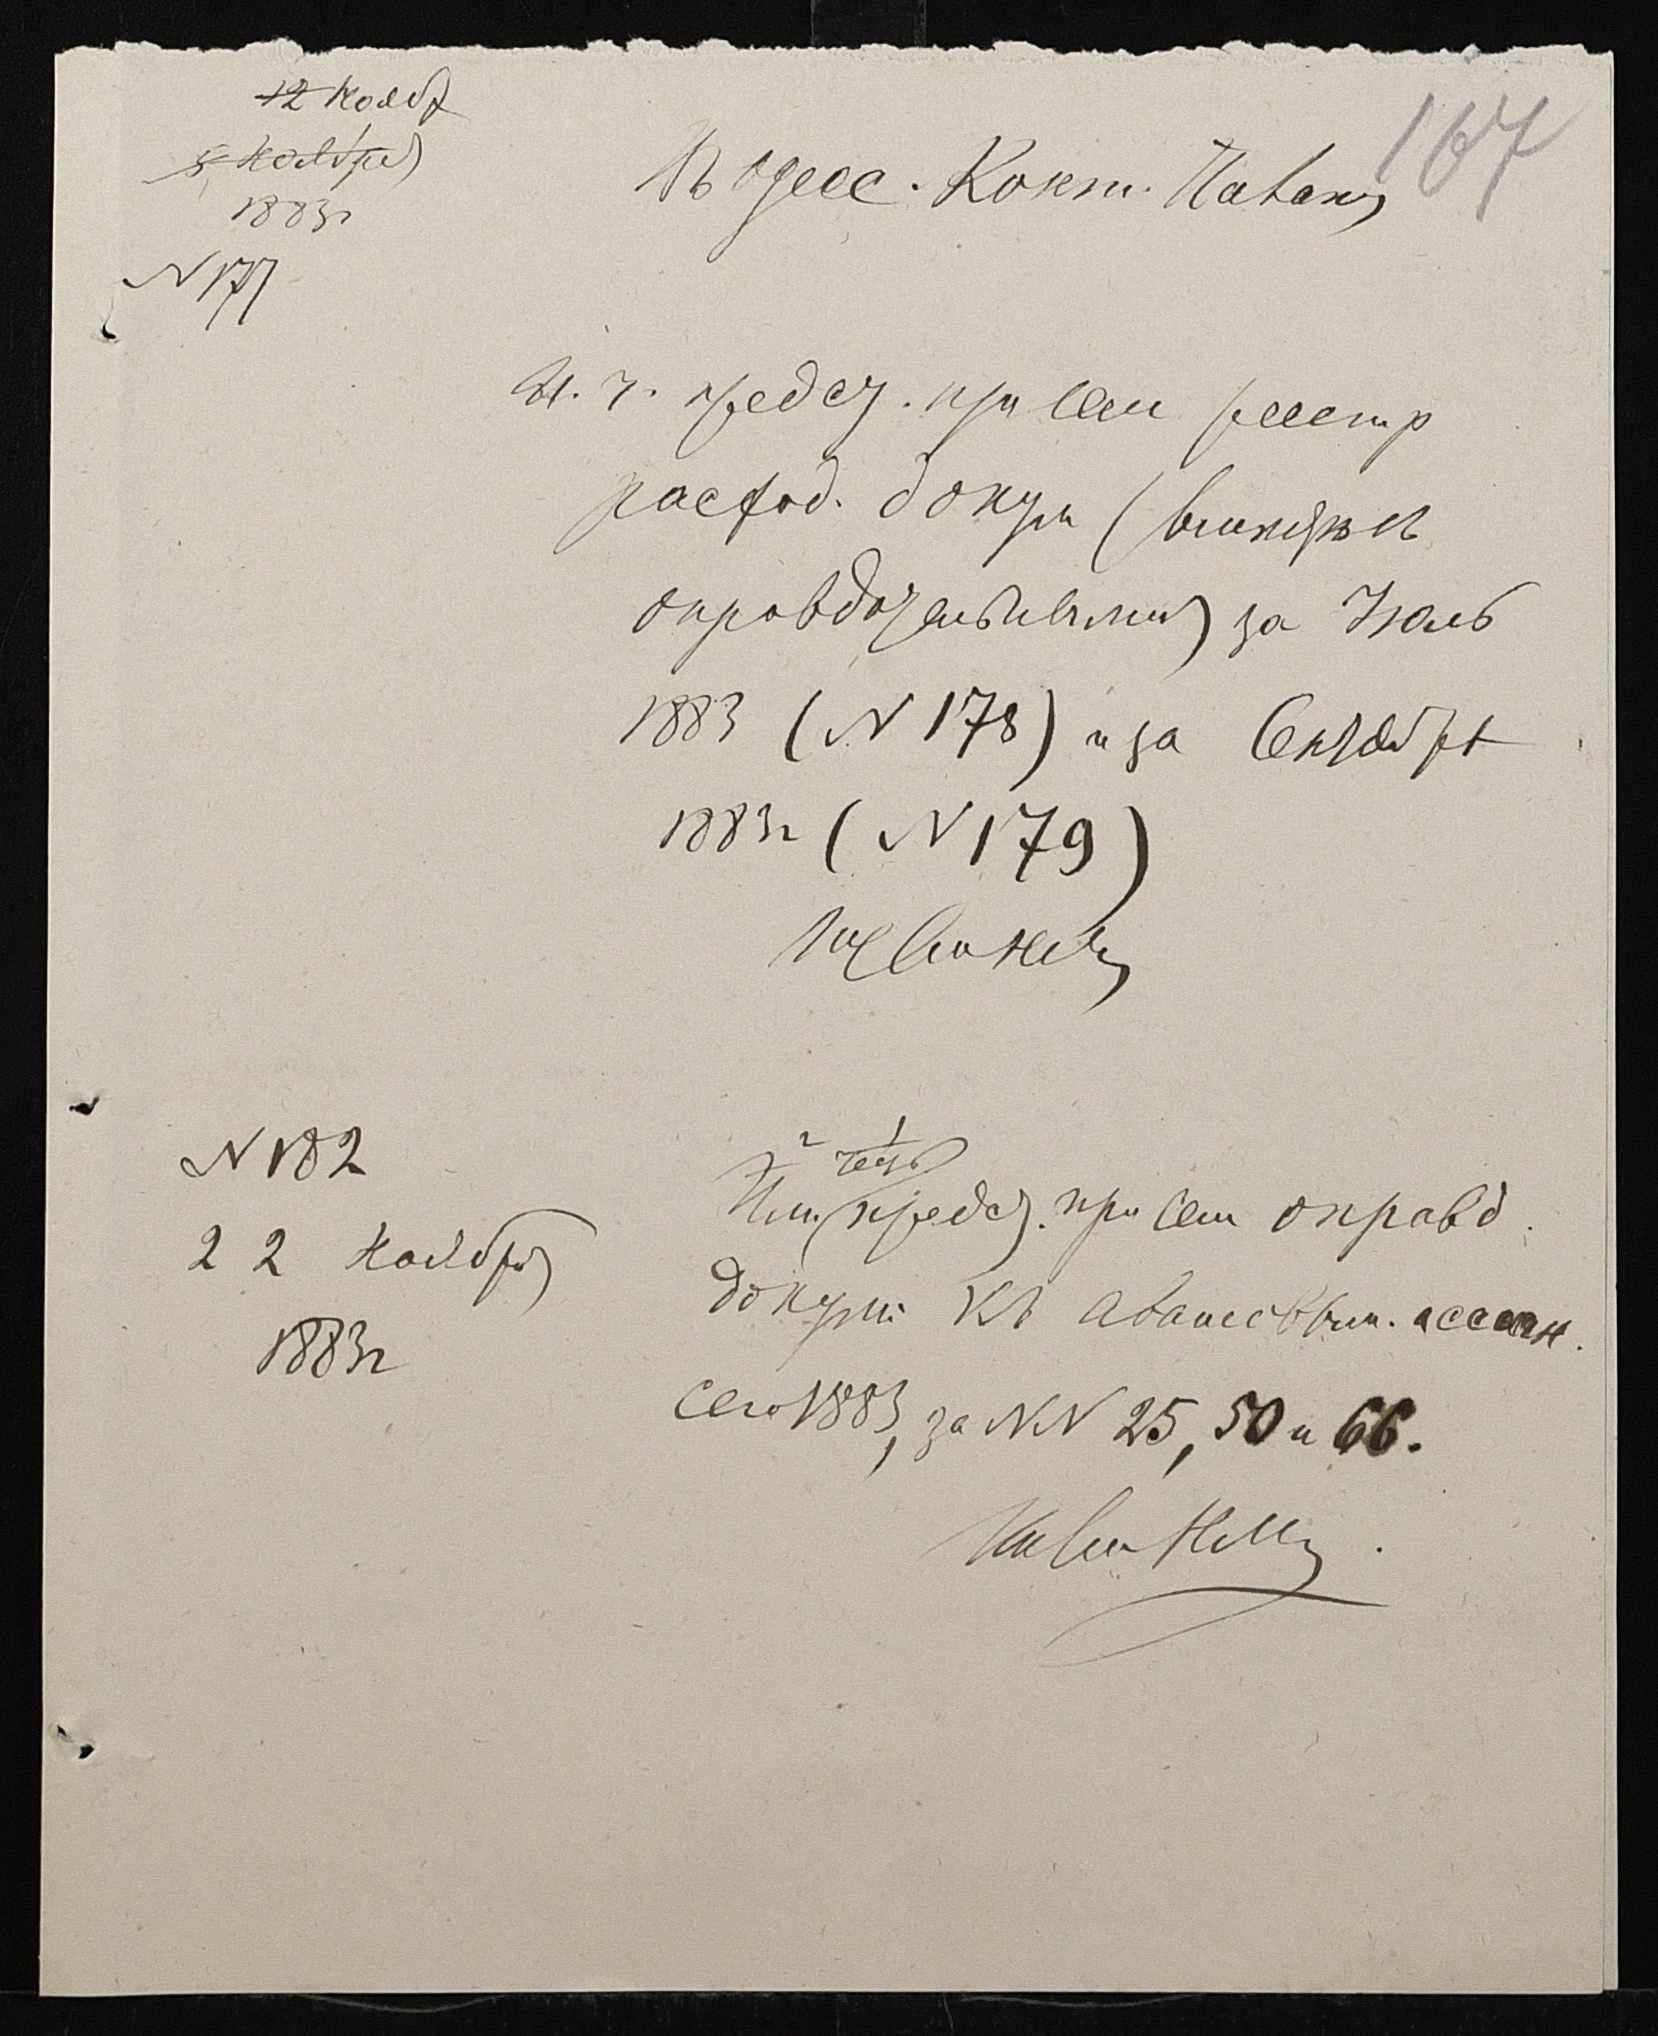 167
12 Нояб
5 Ноября
1883г
N 177
Въ Одесс. Конт.
И. ч. предст. при сем реестр
расход. докум (вместе съ
оправдательными) за Июль
1883 (N 178) и за Октябрь
1883г (N 179)
N 182
22 Ноября
1883г
честь
Имѣю предст. при сем оправд.
докум. къ авансовым. ассигн.
сего 1883, за NN 25, 50 и 66.